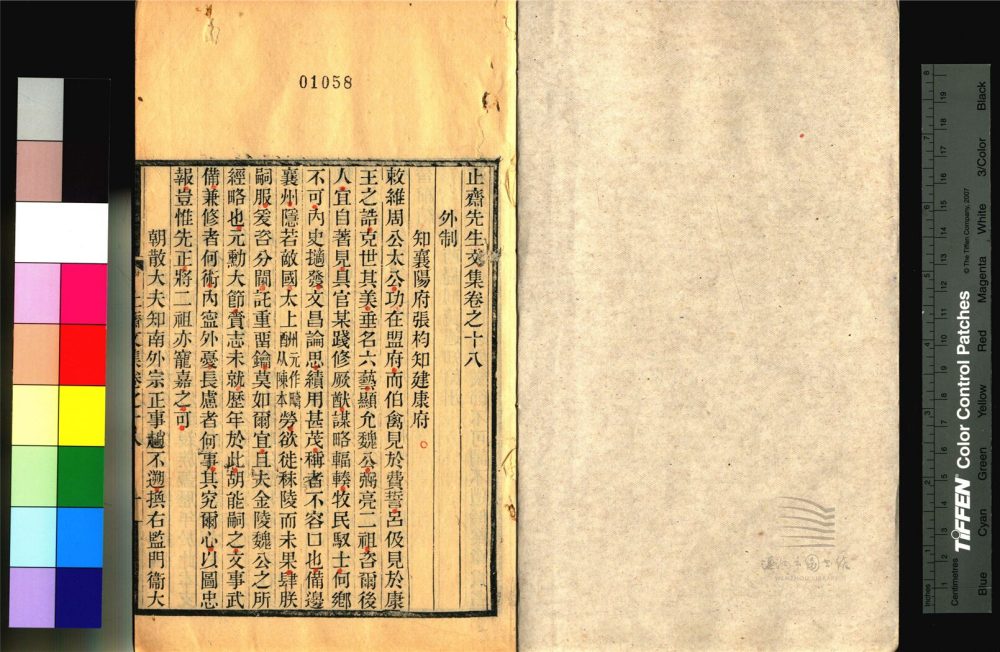 01058
止齋先生文集卷之十八
外制
知襄陽府張杓知建康府
敕維周公太公功在盟府而伯禽見於費誓呂伋見於康
王之誥克世其美垂名六藝顯允魏公弼亮二祖咨爾後
人宜自著見具官某踐修厥猷謀略輻輳牧民馭士何鄉
不可內史擿發文昌論思績用甚茂稱者不容口也備邊
襄州隱若敵國太上酬元作疇從陳本勞欲徙秣陵而未果肆朕
嗣服爰咨分閫託重畱鑰莫如爾宜且夫金陵魏公之所
經略也元勳大節賫志未就歷年於此胡能嗣之文事武
備兼修者何術內寍外憂長慮者何事其究爾心以圖忠
報豈惟先正將二祖亦寵嘉之可
朝散大夫知南外宗正事趙不遡換右監門衞大
溫州市圖書館
WENZHOU LIBRARY
TIFFEN Color Control Patches
© The Tiffen Company, 2007
Inches
Centimetres
Blue Cyan Green Yellow Red Magenta White 3/Color Black